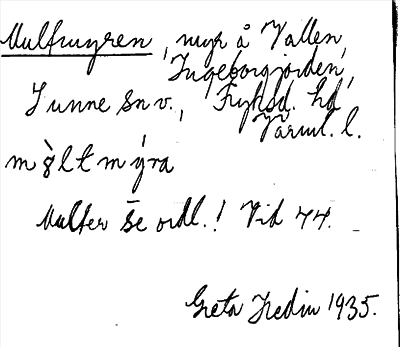 Multmyren, myr å Vallen,
Ingeborgjorden,
Sunne sn v., Fryksd. hd
Värml. l.
mg̀ltmýra
Multer se ordl.! Vid 44.
Greta Hedin 1935.